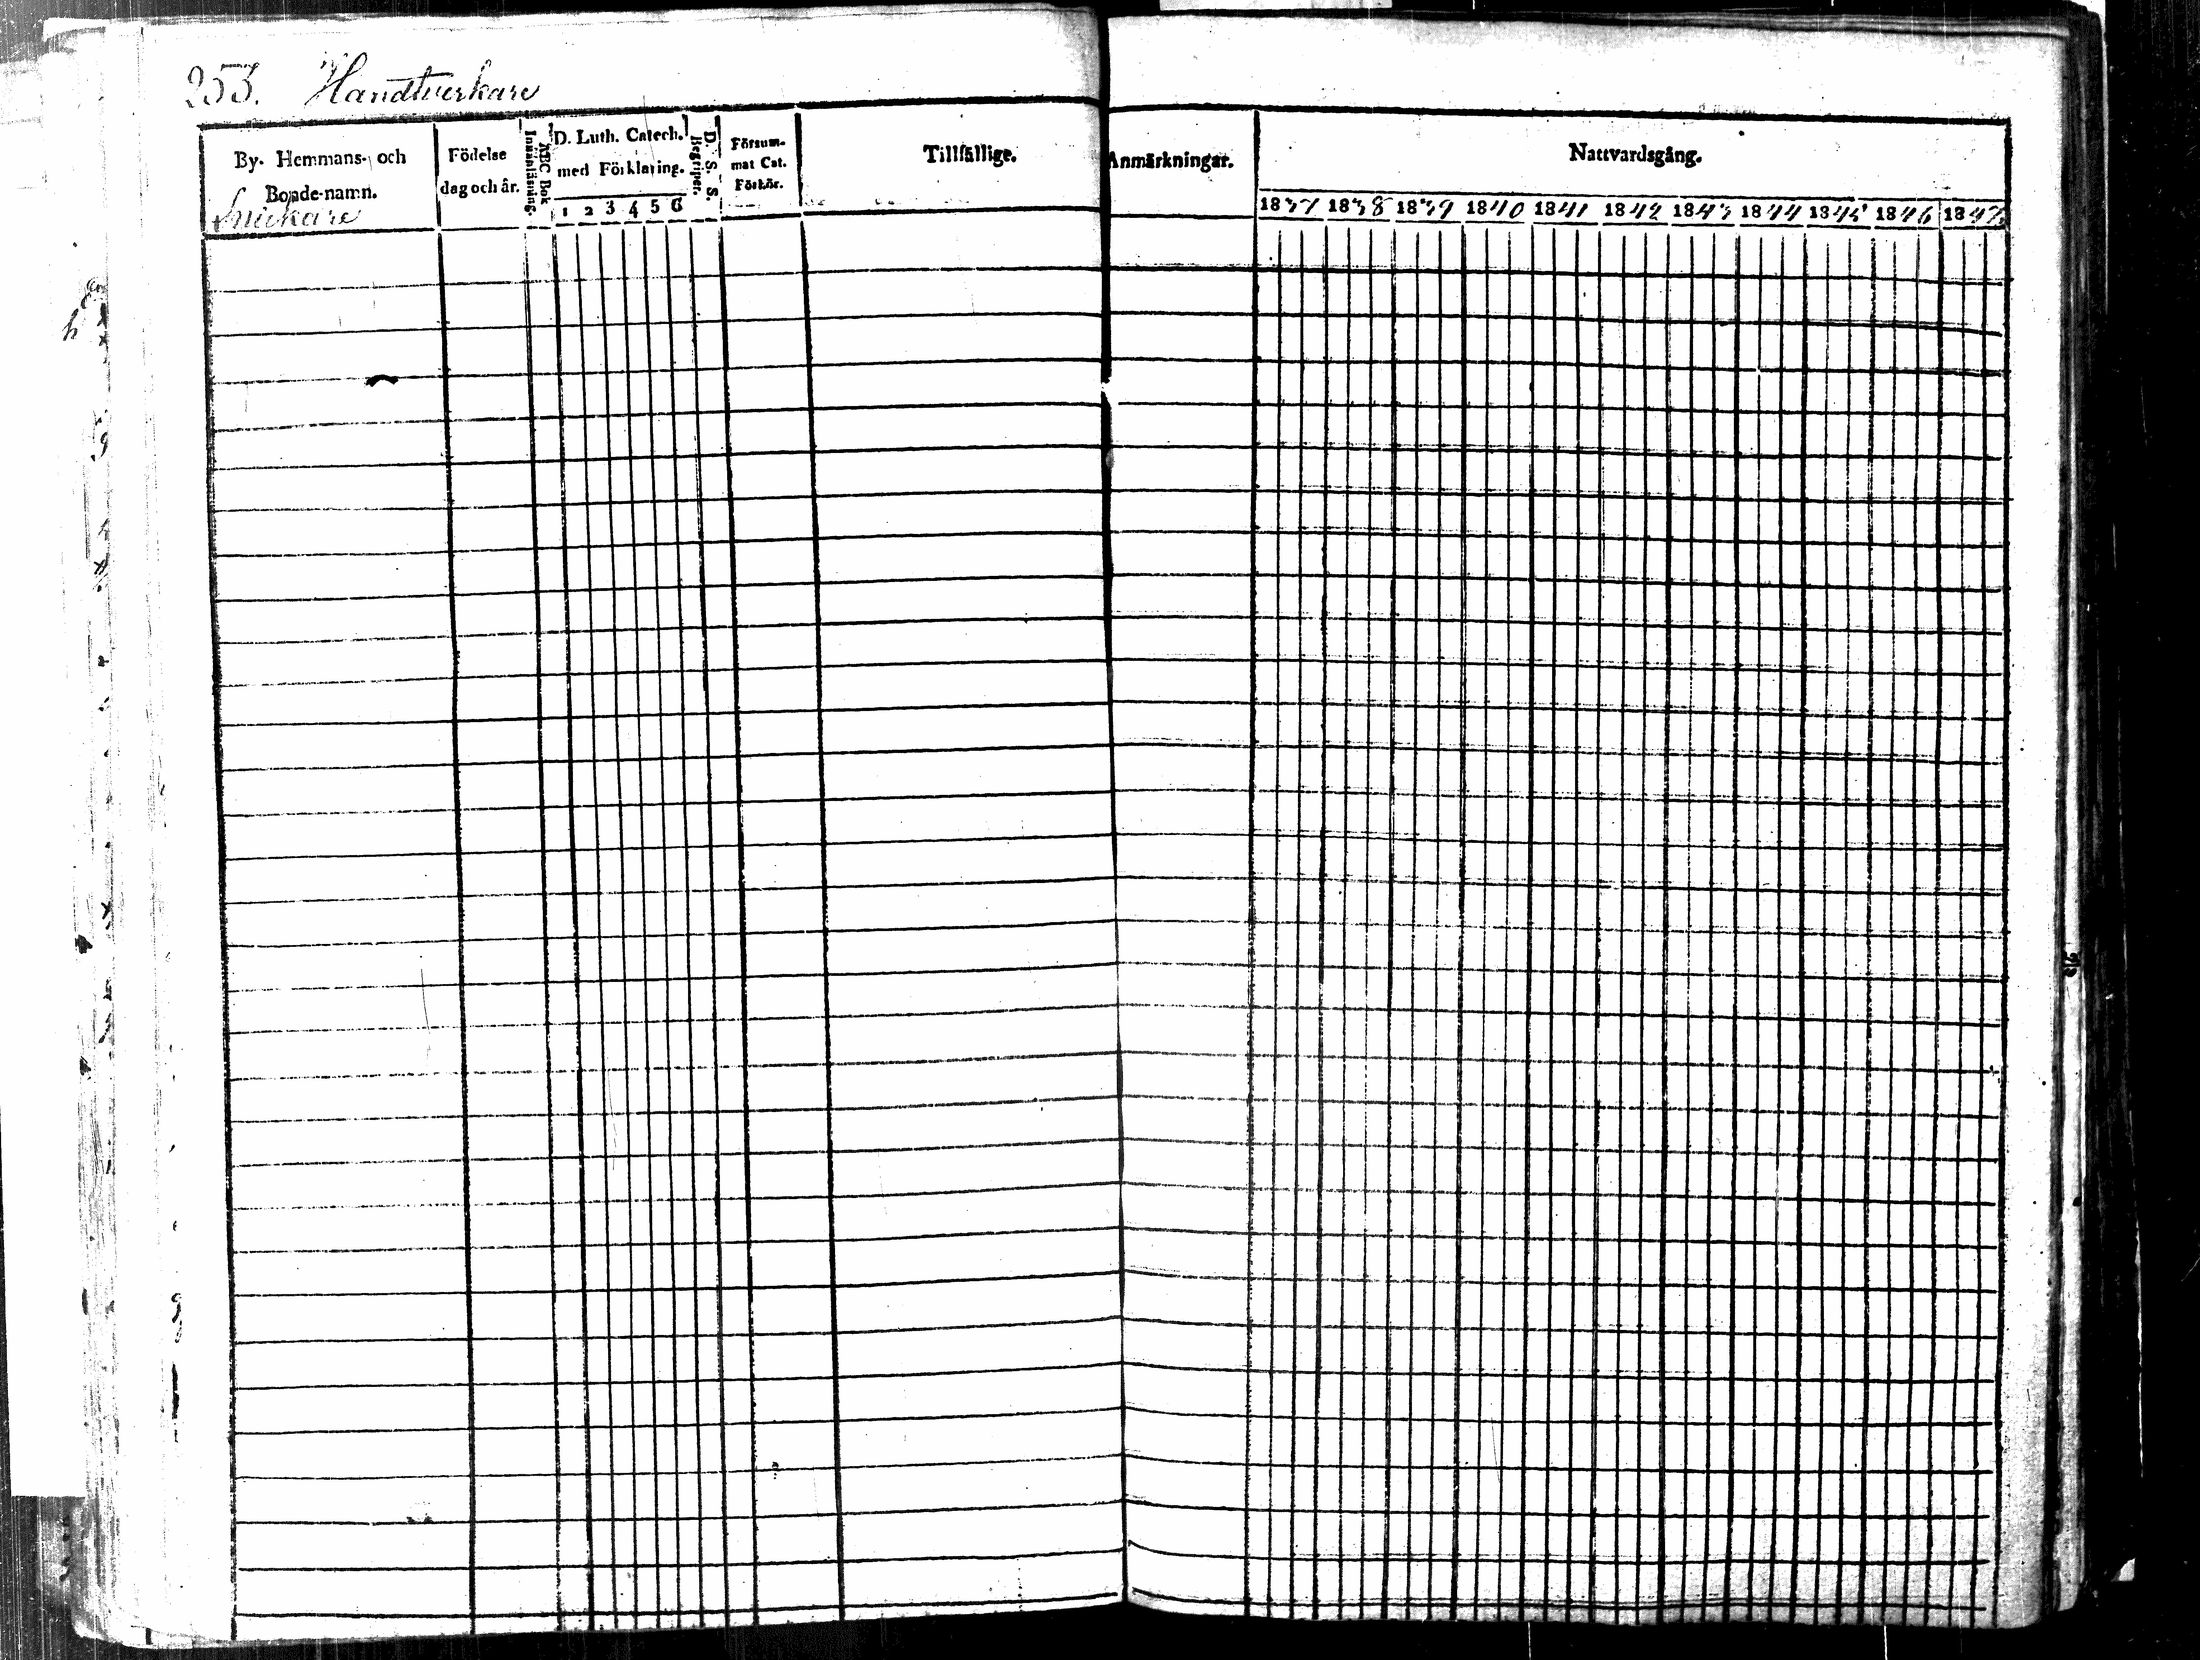 253. Handtverkare
By- Hemmans- och
Bonde-namn.
Snickare
Födelse
dag och år.
ABC Bok
Innanläsning.
D. Luth. Catech.
med Förklaring.
1 2 3 4 5 6
D. S. S.
Begriper.
Försum-
mat Cat.
Förhör.
Tillfällige.
Anmärkningar.
Nattvardsgång.
1837 1838 1839 1840 1841 1842 1843 1844 1845 1846 1847